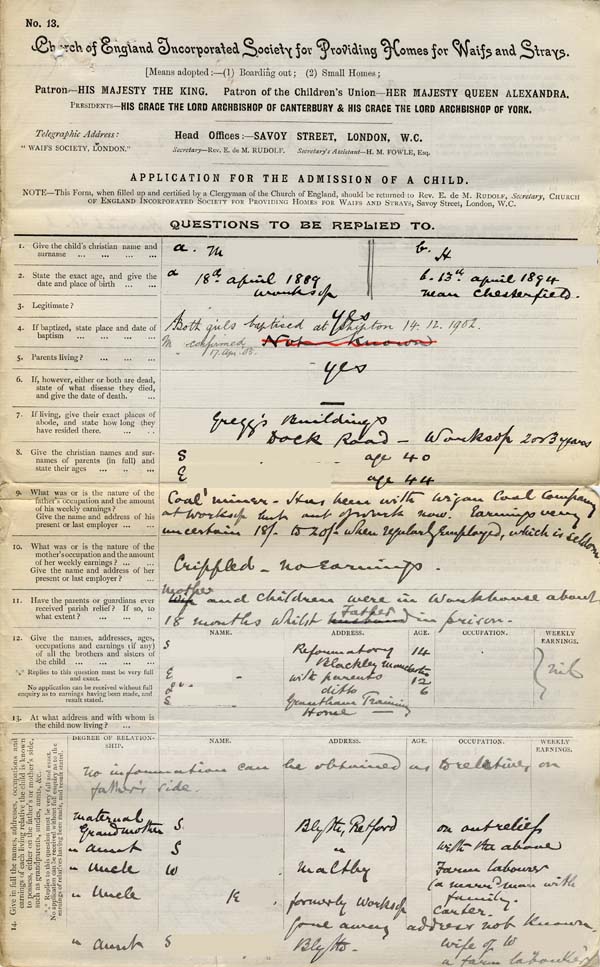 No. 13.
Church of England Incorporated Society for Providing Homes for Waifs and Strays.
[Means adopted:—(1) Boarding out; (2) Small Homes;
Patron—HIS MAJESTY THE KING. Patron of the Children's Union—HER MAJESTY QUEEN ALEXANDRA.
PRESIDENTS—HIS GRACE THE LORD ARCHBISHOP OF CANTERBURY & HIS GRACE THE LORD ARCHBISHOP OF YORK.
Telegraphic Address:
"WAIFS SOCIETY, LONDON."
Head Offices:—SAVOY STREET, LONDON, W.C.
Secretary—REV. E. DE M. RUDOLF. Secretary's Assistant—H. M. FOWLE, ESQ.
APPLICATION FOR THE ADMISSION OF A CHILD.
NOTE—This Form, when filled up and certified by a Clergyman of the Church of England, should be returned to REV. E. DE M. RUDOLF, Secretary, CHURCH
OF ENGLAND INCORPORATED SOCIETY FOR PROVIDING HOMES FOR WAIFS AND STRAYS, Savoy Street, London, W.C.
QUESTIONS TO BE REPLIED TO.
1. Give the child's christian name and
surname ... ... ... ...
a. M
b. H
2. State the exact age, and give the
date and place of birth ... ...
a 18th april 1889
worksop
b. 13th april 1894
near Chesterfield.
3. Legitimate?
yes
4. If baptized, state place and date of
baptism ... ... ... ...
Both girls baptised at Shipton 14.12.1902.
M confirmed
" 17.Apr.05.
Not Known
5. Parents living? ... ... ...
yes
6. If, however, either or both are dead,
state of what disease they died,
and give the date of death. ...
—
7. If living, give their exact places of
abode, and state how long they
have resided there. ... ...
Gregg's Buildings
Dock Road — Worksop 2 or 3 years
8. Give the christian names and sur-
names of parents (in full) and
state their ages ... ... ...
S age 40
E age 44
9. What was or is the nature of the
father's occupation and the amount
of his weekly earnings? ...
Give the name and address of his
present or last employer ... ...
Coal miner - Has been with wigan Coal Company
at Worksop but out of work now. Earnings very
uncertain 18/- to 20/- when regularly Employed, which is seldom
10. What was or is the nature of the
mother's occupation and the amount
of her weekly earnings? ... ...
Give the name and address of her
present or last employer? ...
Crippled - no Earnings.
11. Have the parents or guardians ever
received parish relief? If so, to
what extent? ... ... ...
mother
Wife and Children were in Workhouse about
18 months whilst husband Father in prison.
12. Give the names, addresses, ages,
occupations and earnings (if any)
of all the brothers and sisters of
the child ... ... ... ...
"." Replies to this question must be very full
and exact.
No application can be received without full
enquiry as to earnings having been made, and
result stated.
NAME. ADDRESS. AGE. OCCUPATION. WEEKLY
EARNINGS.
S Reformatory 14
Blackley manchester
E with parents 12
ditto 6
S Grantham Training
Home —
nil
13. At what address and with whom is
the child now living? ... ...
14. Give in full the names, addresses, occupations and
earnings of each living relative the child is known
to possess, either on its father's or mother's side,
such as grandparents, uncles, aunts, &c.
"." Replies to this question must be very full and exact.
No application can be received without full enquiry as to the
earnings of relatives having been made, and result stated.
DEGREE OF RELATION-
SHIP. NAME. ADDRESS. AGE. OCCUPATION. WEEKLY
EARNINGS.
no information can be obtained as to relatives on
father's side.
maternal
Grandmother S. Blyth, Retford on outrelief
" aunt S " with the above
" Uncle W Maltby Farm labourer
(a married man with
family.
" Uncle E formerly Worksop Carter.
gone away address not known.
" aunt S Blyth. wife of W
a farm labourer